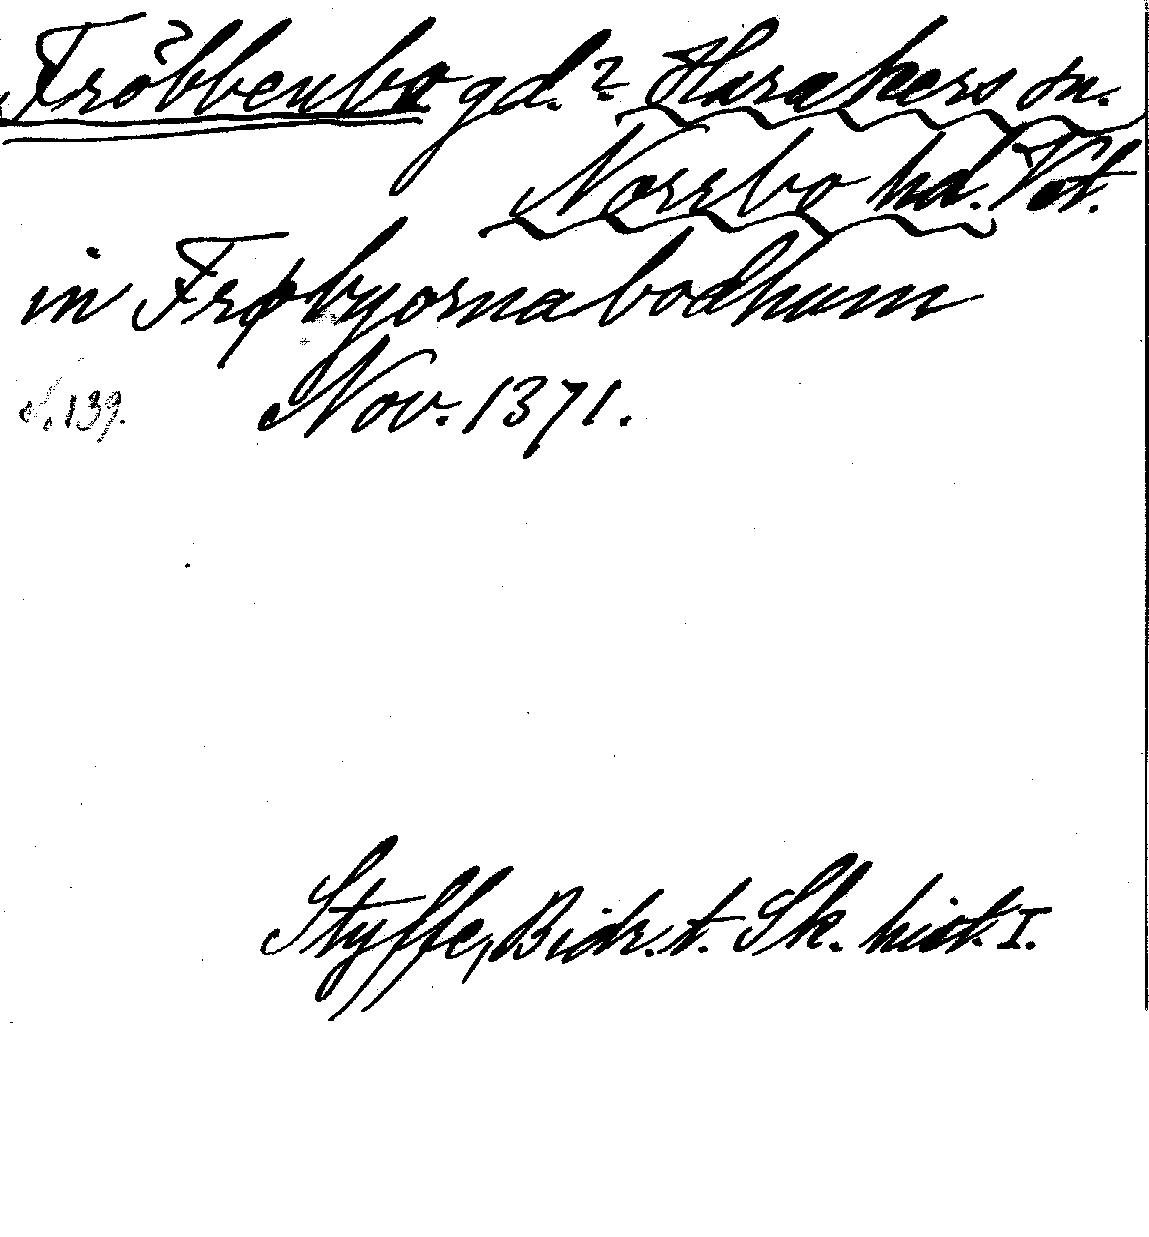 Fröbbenbo gd.? Harakers sn.
Norrbo hd. Vstm.
in Frøbyornabodhum
s. 139. Nov. 1371.
Styffe, Bidr. t. Sk. hist. I.